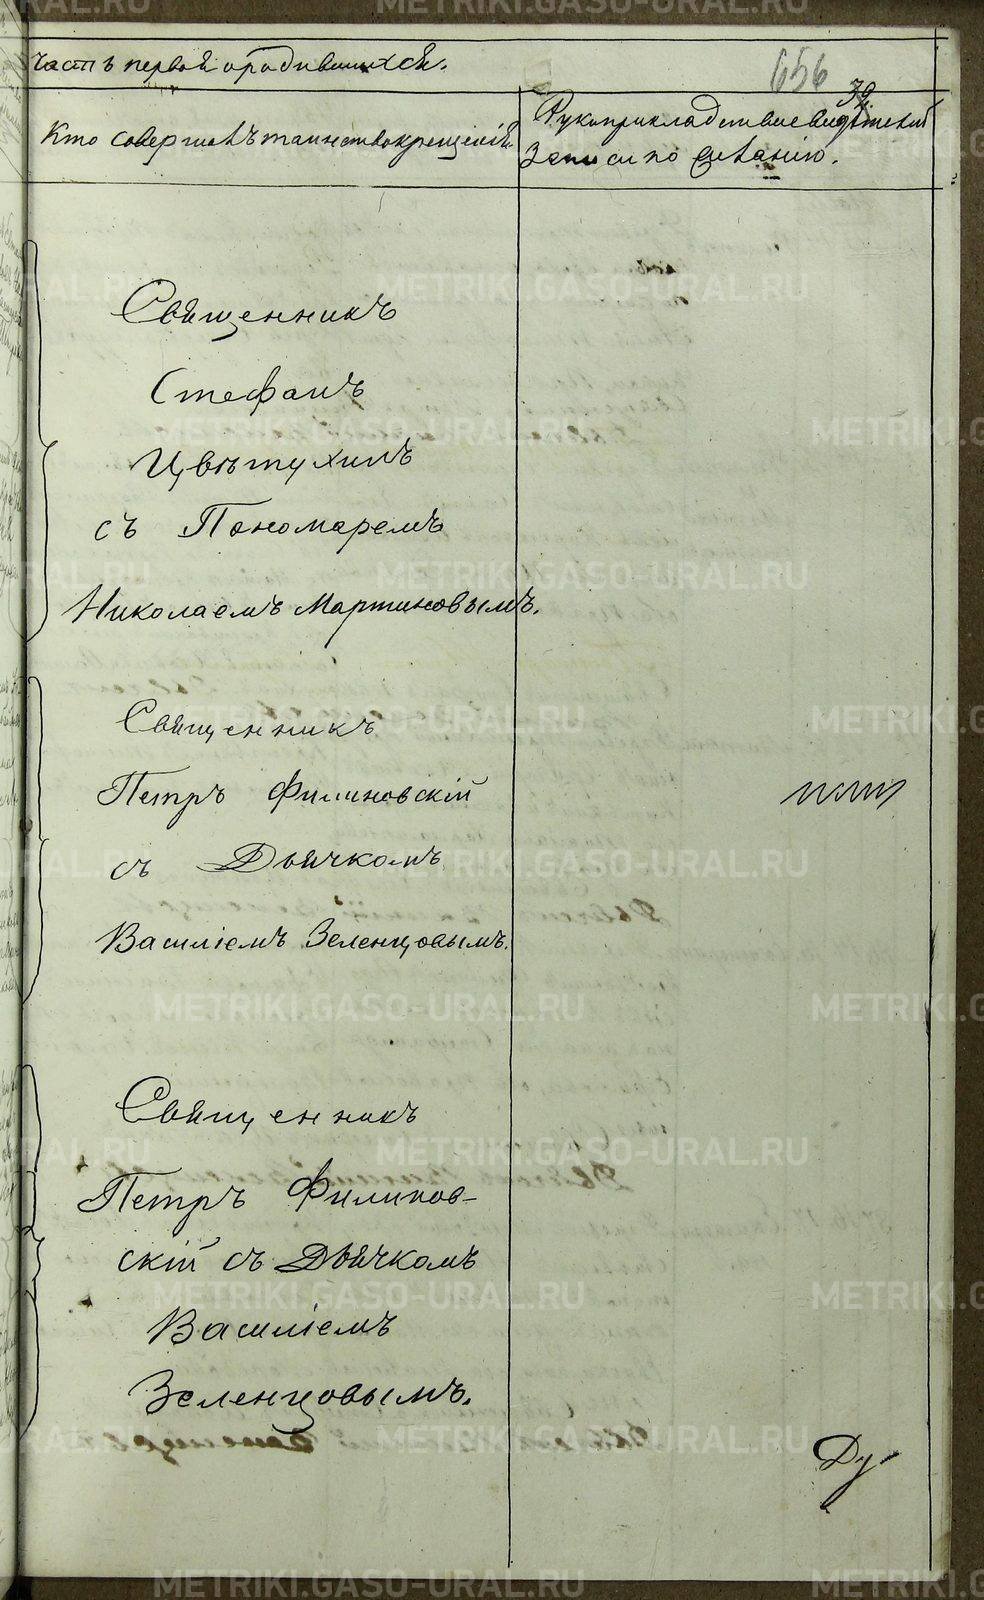 Часть первая о родившихся.
656
39.
Кто совершалъ таинство крещенія
Рукоприкладствие свидѣтелей
записи по желанію.
Священникъ
Стефанъ
Цвѣтухинъ
съ Пономаремъ
Николаемъ Мартиновымъ.
Священникъ
Петръ Филиновскій
съ Дьячкомъ
Василіемъ Зеленцовымъ.
Священникъ
Петръ Филинов-
скій съ Дьячкомъ
Василіемъ
Зеленцовымъ.
Ду
METRIKI.GASO-URAL.RU